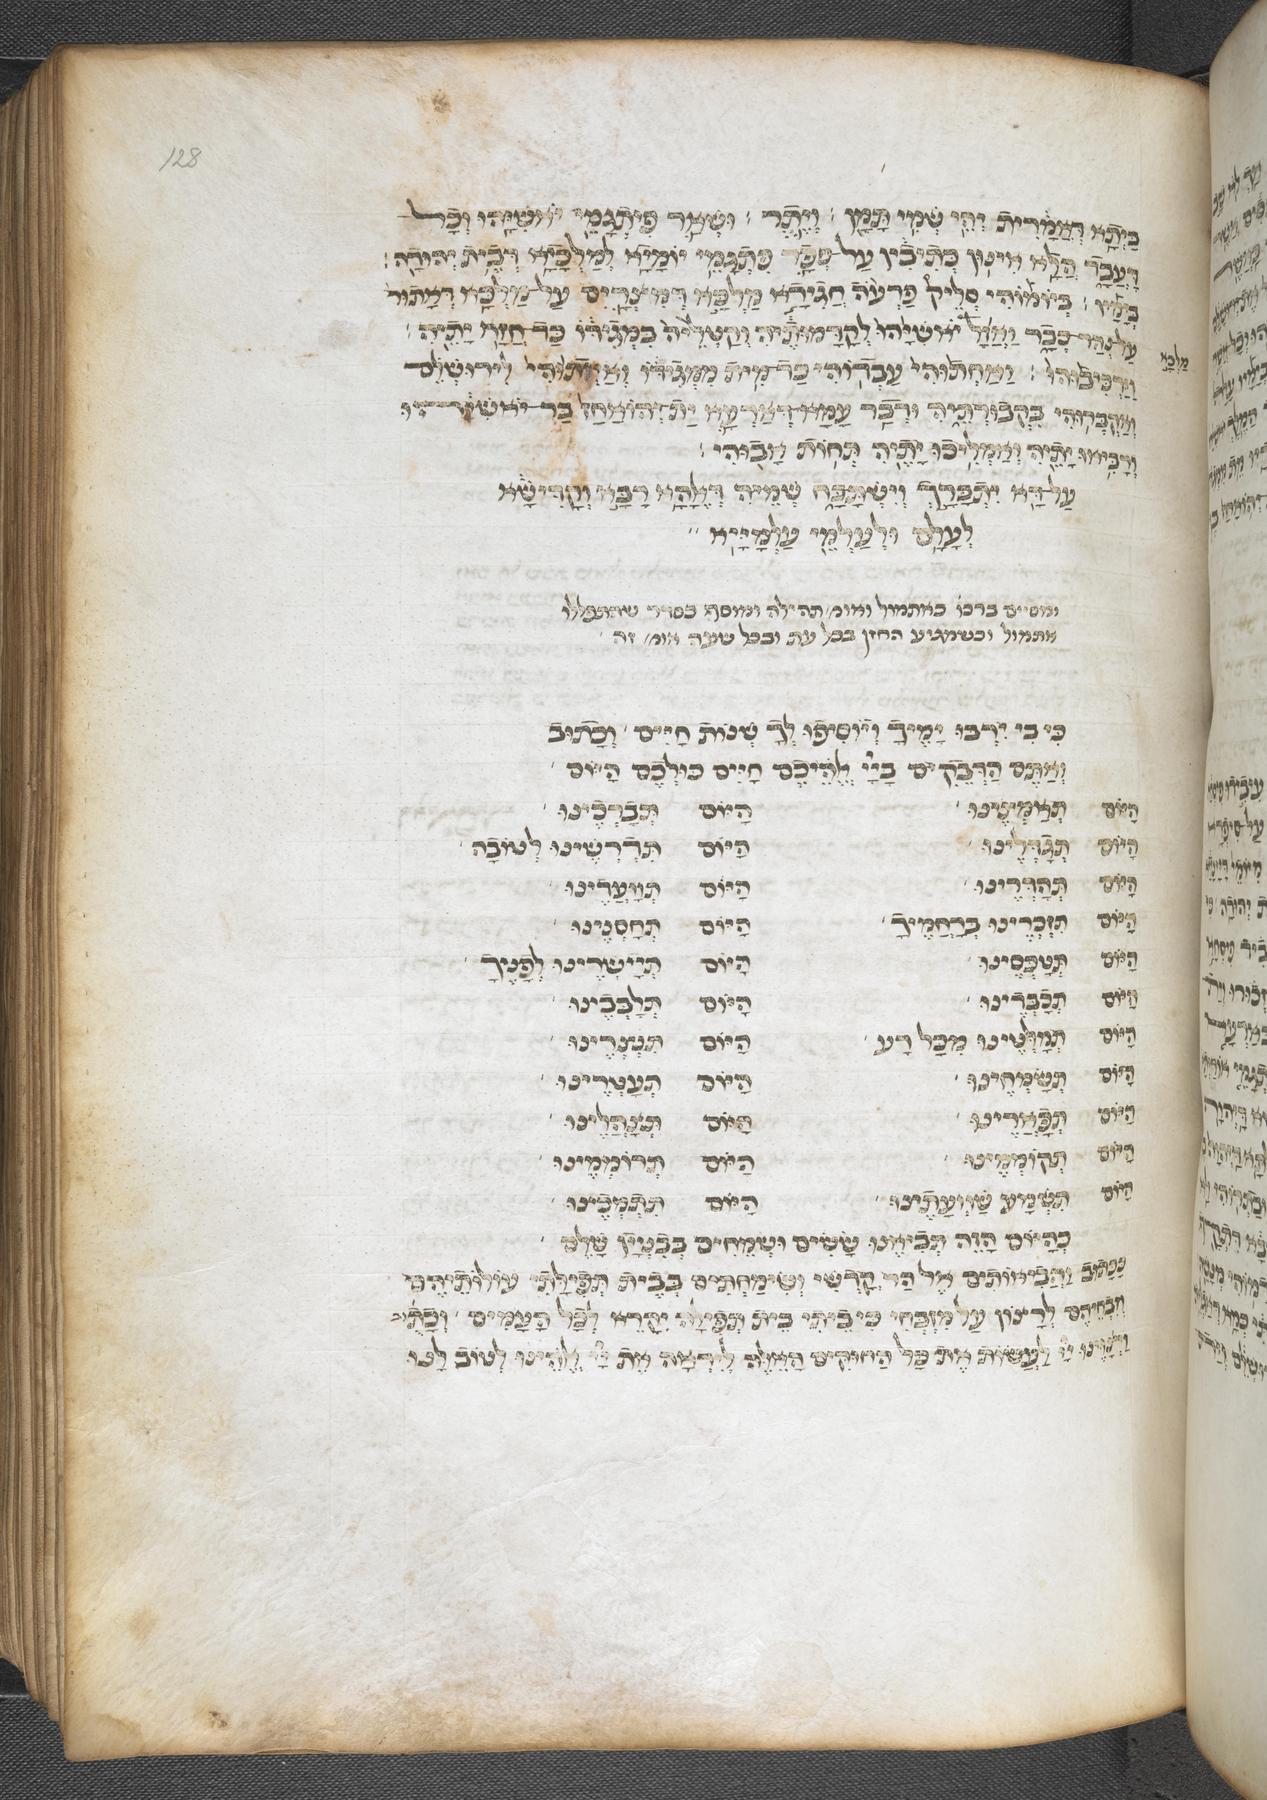 128
בֵּיתָא דַאֲמַרִית יְהֵי שְׁמִי תַּמָּן : וְיֶתֶר : וּשְׁאָר פִּתְגָמֵי יֹאשִׁיָּהוּ וְכָל
דַעֲבַד הֲלָא אִינוּן כְּתִיבִין עַל סְפַר פִּתְגָמֵי יוֹמַיָּא לְמַלְכַיָּא דְבֵית יְהוּדָה :
בְּיָמָיו : בְּיוֹמוֹהִי סְלֵיק פַּרְעֹה חֲגִירָא מַלְכָּא דְמִצְרַיִם עַל מַלְכָּא דְאַתּוּר
עַל נְהַר פְּרָת וַאֲזַל יֹאשִׁיָּהוּ לְקַדָּמוּתֵיהּ וְקַטְלֵיהּ בִּמְגִדּוֹ כַּד חֲזָא יָתֵיהּ :
מלכא
וַיַּרְכִּיבוּהוּ : וְאַחֲתוֹהִי עַבְדּוֹהִי כַּד מִית מִמְּגִדּוֹ וְאַיְתוֹהִי לִירוּשְׁלֵם
וּקְבָרוּהִי בִּקְבוּרְתֵיהּ וּדְבַר עַמָּא דְאַרְעָא יַת יְהוֹאָחָז בַּר יֹאשִׁיָּהוּ
וְרַבִּיאוּ יָתֵיהּ וְאַמְלִיכוּ יָתֵיהּ תְּחוֹת אֲבוּהִי :
עַל דָּא יִתְבָּרַךְ וְיִשְׁתַּבַּח שְׁמֵיהּ דֶּאֱלָהָא רַבָּא וְקַדִּישָׁא
לְעָלַם וּלְעָלְמֵי עָלְמַיָּא
ומסיים ברכו כאתמול ואומ׳ תהילה ומוסף כסדר שהתפללו
אתמול וכשמגיע החזן בכל עת ובכל שעה אומ׳ זה
כִּי בִי יִרְבּוּ יָמֶיךָ וְיוֹסִיפוּ לְךָ שְׁנוֹת חַיִּים׳ וְכָתוּב
וְאַתֶּם הַדְּבֵקִים בַּיְיָ אֱלֹהֵיכֶם חַיִּים כּוּלְכֶם הַיּוֹם׳
הַיּוֹם תְּאַמְּצֵינוּ׳ הַיּוֹם תְּבָרְכֵינוּ׳
הַיּוֹם תְּגַדְּלֵינוּ׳ הַיּוֹם תִּדְרְשֵׁינוּ לְטוֹבָה׳
הַיּוֹם תְּהַדְּרֵינוּ׳ הַיּוֹם תְּוַעֲדֵינוּ׳
הַיּוֹם תִּזְכְּרֵינוּ בְּרַחֲמֶיךָ׳ הַיּוֹם תְּחַסְּנֵינוּ׳
הַיּוֹם תְּטַכְּסֵינוּ׳ הַיּוֹם תְּיַישְּׁרֵינוּ לְפָנֶיךָ׳
הַיּוֹם תְּכַבְּדֵינוּ׳ הַיּוֹם תְּלַבְּבֵינוּ׳
הַיּוֹם תְּמַלְּטֵינוּ מִכָּל רָע׳ הַיּוֹם תִּנְצְרֵינוּ׳
הַיּוֹם תְּשַׂמְּחֵינוּ׳ הַיּוֹם תְּעַטְּרֵינוּ׳
הַיּוֹם תְּפָאֲרֵינוּ׳ הַיּוֹם תְּצַהֲלֵינוּ׳
הַיּוֹם תְּקוֹמְמֵינוּ׳ הַיּוֹם תְּרוֹמְמֵינוּ׳
הַיּוֹם תִּשְׁמַע שַׁוְועָתֵינוּ׳ הַיּוֹם תִּתְמְכֵינוּ׳
כְּהַיּוֹם הַזֶּה תְּבִיאֵנוּ שָׂשִׂים וּשְׂמֵחִים בְּבִנְיַן שָׁלֵם׳
ככתוב וַהֲבִיאוֹתִים אֶל הַר קָדְשִׁי וְשִׂימַּחְתִּים בְּבֵית תְּפִילָתִי עוֹלוֹתֵיהֶם
וְזִבְחֵיהֶם לְרָצוֹן עַל מִזְבְּחִי כִּי בֵיתִי בֵּית תְּפִילָה יִקָּרֵא לְכָל הָעַמִּים׳ וְכָתוּב
וַיְצַוֵּינוּ יְיָ לַעֲשׂוֹת אֶת כָּל הַחוּקִּים הָאֵלֶּה לְיִרְאָה אֶת יְיָ אֱלֹהֵינוּ לְטוֹב לָנוּ